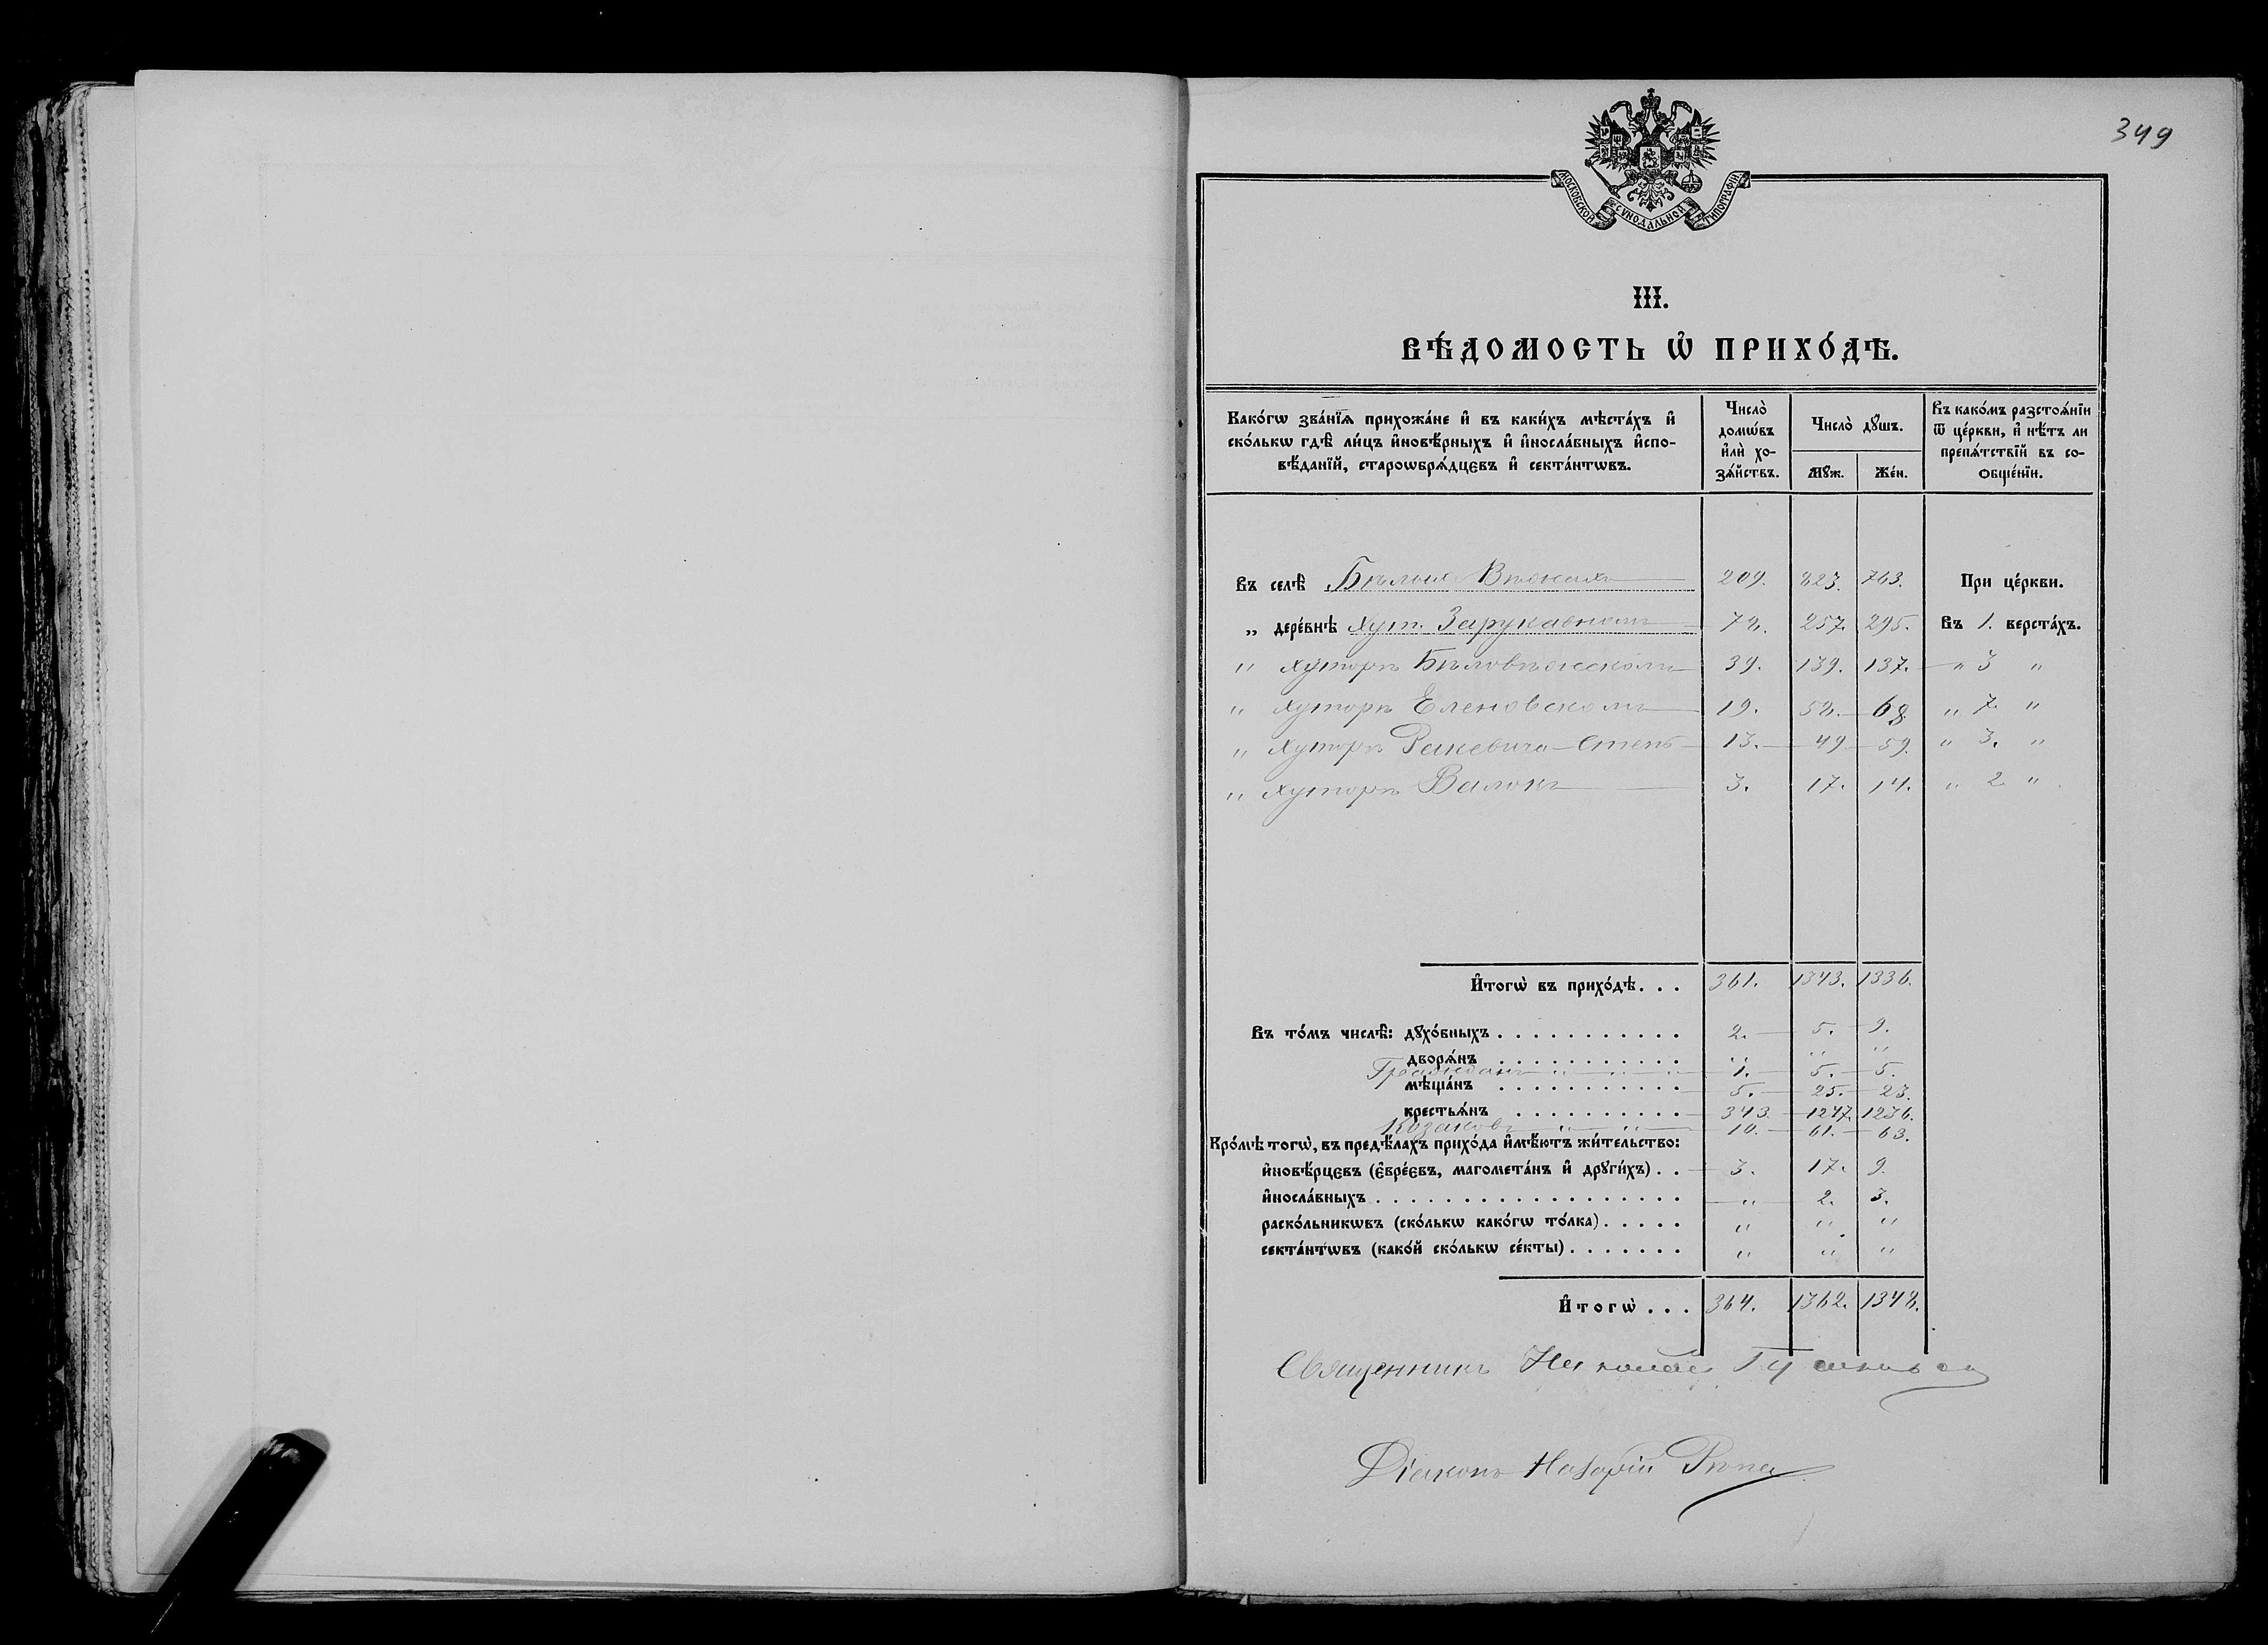 349
МОСКОВСКОЙ СѴНОДАЛЬНОЙ ТИПОГРАФІИ
III.
ВѢ́ДОМОСТЬ Ѡ҆ ПРИХО́ДѢ.
Како́гѡ зва́нїѧ прихожа́не и҆ въ каки́хъ мѣста́хъ и҆
ско́лькѡ гдѣ̀ ли́цъ и҆новѣ́рныхъ и҆ и҆носла́вныхъ и҆спо-
вѣ́данїй, староѡбрѧ́дцевъ и҆ секта́нтѡвъ.
Число̀
домѡ́въ
и҆лѝ хо-
зѧ́йствъ.
Число̀ дꙋ́шъ.
Мꙋ́ж.
Же́н.
Въ како́мъ разстоѧ́нїи
ѿ це́ркви, и҆ нѣ́тъ ли
препѧ́тствїй въ со-
ѻбще́нїи.
Въ селѣ̀ Бѣлыхъ Вѣжахъ 209. 823. 763. При це́ркви.
„ дере́внѣ Хут. Зарукавномъ 78. 257. 295. Въ 1. верста́хъ.
„ хуторѣ Бѣловѣжскомъ 39. 139. 137. „ 3 „
„ хуторѣ Еленовскомъ 19. 58. 68. „ 7. „
„ хуторѣ Ракевича-Степь 13. 49 59. „ 3. „
„ хуторѣ Валокъ 3. 17. 14. „ 2 „
И҆тогѡ̀ въ прихо́дѣ. . . 361. 1343. 1336.
Въ то́мъ числѣ̀: дꙋхо́вныхъ . . . . . . . . . . . 2. 5. 9.
дворѧ́нъ . . . . . . . . . . . „ „ „
Гражданъ „ „ „ 1. 5. 5.
мѣща́нъ . . . . . . . . . . . 5. 25. 23.
крестьѧ́нъ . . . . . . . . . . 343. 1247. 1236.
Козаковъ „ „ 10. 61. 63.
Кро́мѣ тогѡ̀, въ предѣ́лахъ прихо́да и҆мѣ́ютъ жи́тельство:
и҆новѣ́рцевъ (є҆вре́евъ, магомета́нъ и҆ дрꙋги́хъ) . . 3. 17. 9.
и҆носла́вныхъ . . . . . . . . . . . . . . . . . . „ 2. 3.
раско́льникѡвъ (ско́лькѡ како́гѡ то́лка) . . . . . „ „ „
секта́нтѡвъ (како́й ско́лькѡ се́кты) . . . . . . . „ „ „
И҆тогѡ̀ . . . 364. 1362. 1348.
Священникъ Николай
Діаконъ Назарій Рѣпа